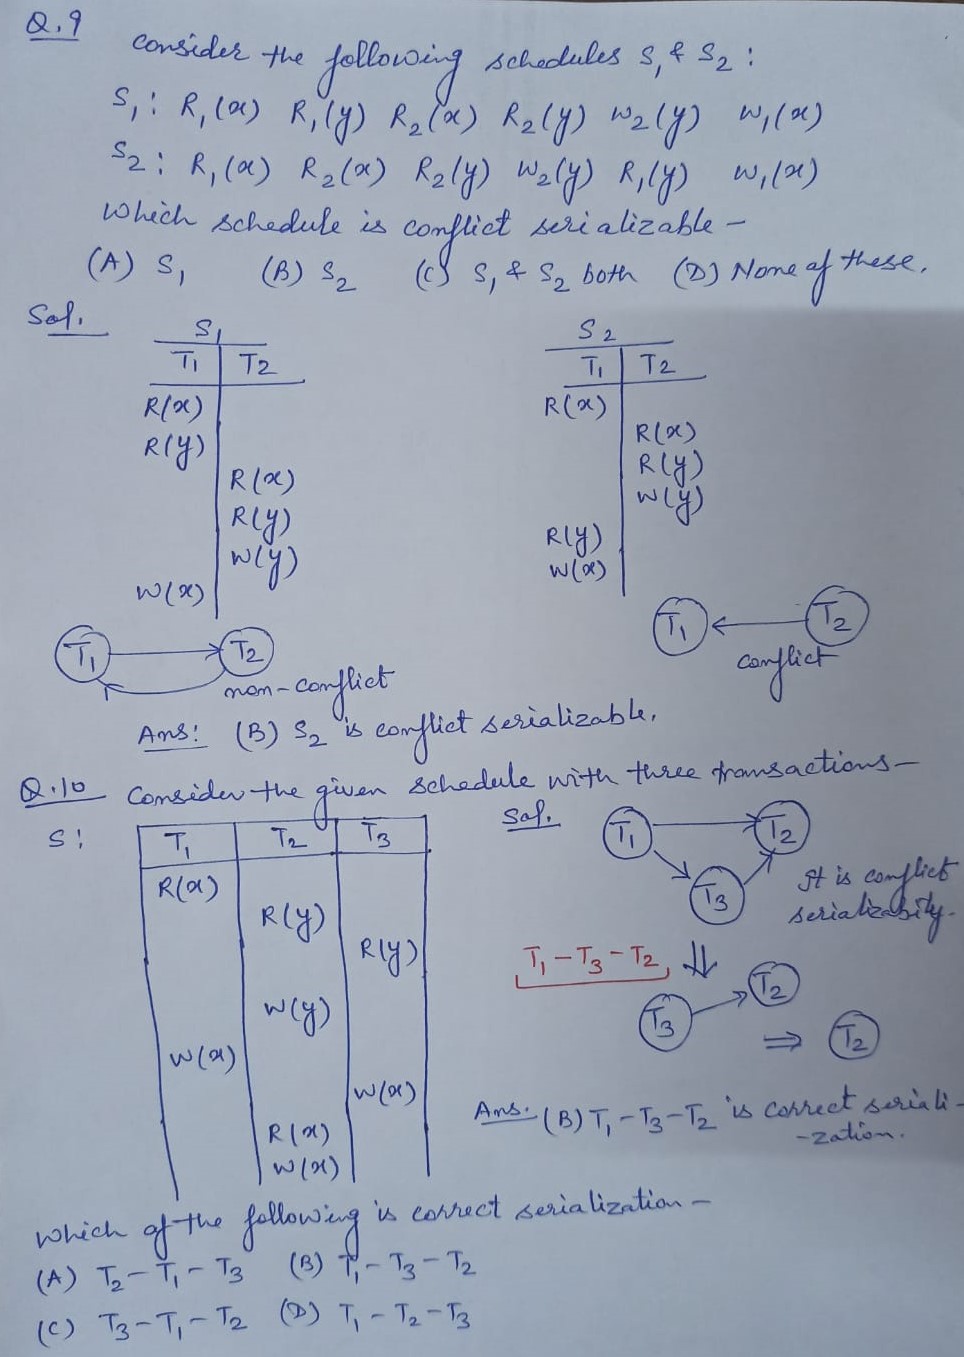 Q.9
Consider the following schedules S₁ & S₂ :
S₁ : R₁(x) R₁(y) R₂(x) R₂(y) W₂(y) W₁(x)
S₂ : R₁(x) R₂(x) R₂(y) W₂(y) R₁(y) W₁(x)
Which schedule is conflict serializable –
(A) S₁ (B) S₂ (C) S₁ & S₂ both (D) None of these.
Sol.
S₁
T₁ T₂
R(x)
R(y)
R(x)
R(y)
W(y)
W(x)
T₁ T₂
non-conflict
S₂
T₁ T₂
R(x)
R(x)
R(y)
W(y)
R(y)
W(x)
T₁ T₂
conflict
Ans: (B) S₂ is conflict serializable.
Q.10 Consider the given schedule with three transactions –
S :
T₁ T₂ T₃
R(x)
R(y)
R(y)
W(y)
W(x)
W(x)
R(x)
W(x)
Sol.
T₁ T₂
T₃
It is conflict
serializability.
T₁ – T₃ – T₂ ⇓
T₃ T₂ ⇒ T₂
Ans. (B) T₁ – T₃ – T₂ is correct seriali-
-zation.
Which of the following is correct serialization –
(A) T₂ – T₁ – T₃ (B) T₁ – T₃ – T₂
(C) T₃ – T₁ – T₂ (D) T₁ – T₂ – T₃